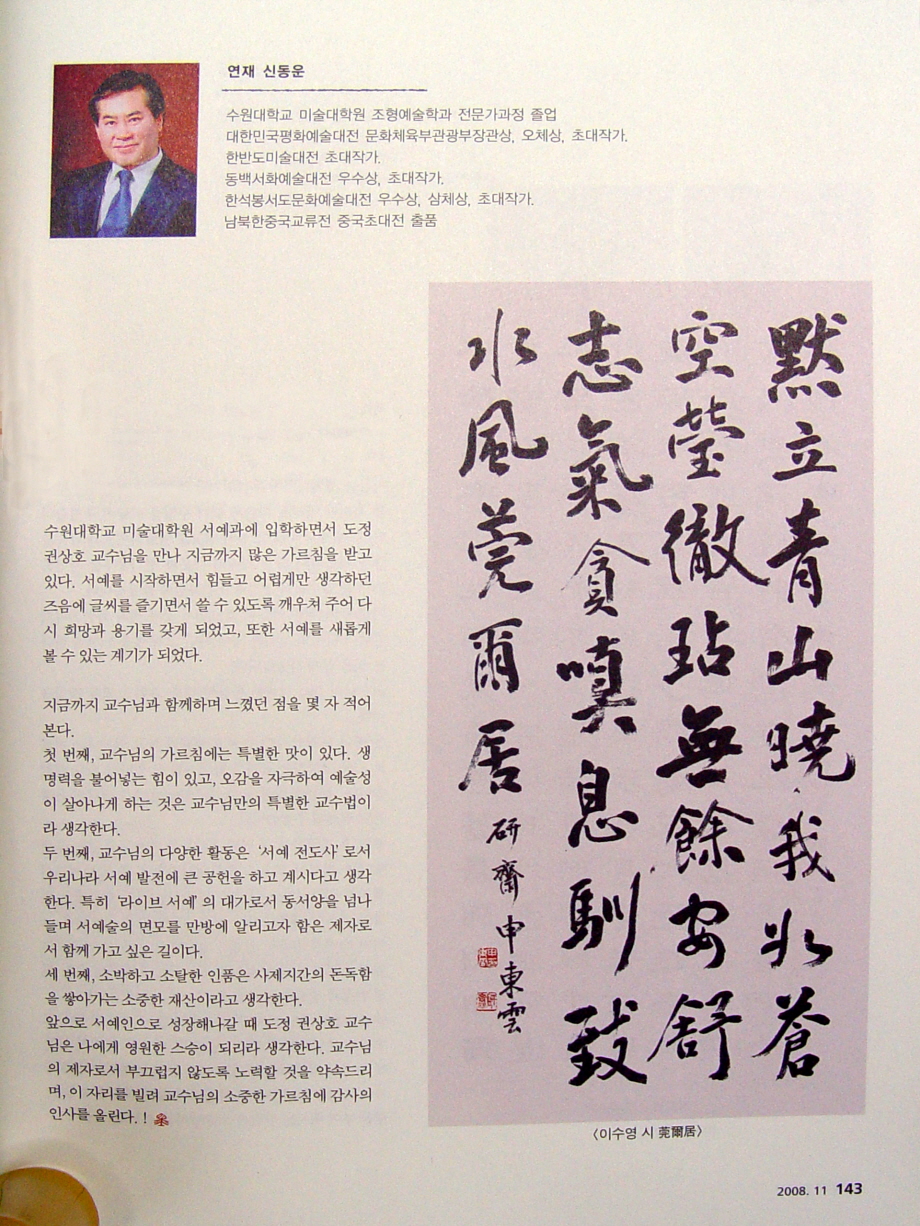 연재 신동운
수원대학교 미술대학원 조형예술학과 전문가과정 졸업
대한민국평화예술대전 문화체육부관광부장관상, 오체상, 초대작가.
한반도미술대전 초대작가.
동백서화예술대전 우수상, 초대작가.
한석봉서도문화예술대전 우수상, 삼체상, 초대작가.
남북한중국교류전 중국초대전 출품
수원대학교 미술대학원 서예과에 입학하면서 도정
권상호 교수님을 만나 지금까지 많은 가르침을 받고
있다. 서예를 시작하면서 힘들고 어렵게만 생각하던
즈음에 글씨를 즐기면서 쓸 수 있도록 깨우쳐 주어 다
시 희망과 용기를 갖게 되었고, 또한 서예를 새롭게
볼 수 있는 계기가 되었다.
지금까지 교수님과 함께하며 느꼈던 점을 몇 자 적어
본다.
첫 번째, 교수님의 가르침에는 특별한 맛이 있다. 생
명력을 불어넣는 힘이 있고, 오감을 자극하여 예술성
이 살아나게 하는 것은 교수님만의 특별한 교수법이
라 생각한다.
두 번째, 교수님의 다양한 활동은 ‘서예 전도사’로서
우리나라 서예 발전에 큰 공헌을 하고 계시다고 생각
한다. 특히 ‘라이브 서예’의 대가로서 동서양을 넘나
들며 서예술의 면모를 만방에 알리고자 함은 제자로
서 함께 가고 싶은 길이다.
세 번째, 소박하고 소탈한 인품은 사제지간의 돈독함
을 쌓아가는 소중한 재산이라고 생각한다.
앞으로 서예인으로 성장해나갈 때 도정 권상호 교수
님은 나에게 영원한 스승이 되리라 생각한다. 교수님
의 제자로서 부끄럽지 않도록 노력할 것을 약속드리
며, 이 자리를 빌려 교수님의 소중한 가르침에 감사의
인사를 올린다. !
默立青山曉我氷蒼
空瑩徹玷無餘安舒
志氣貪嗔息馴致
水風莞爾居 硏齋 申東雲
〈이수영 시 莞爾居〉
2008. 11 143